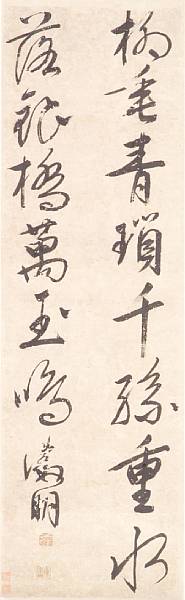 柳垂青瑣千絲重水
落銀橋萬玉鳴
徵明